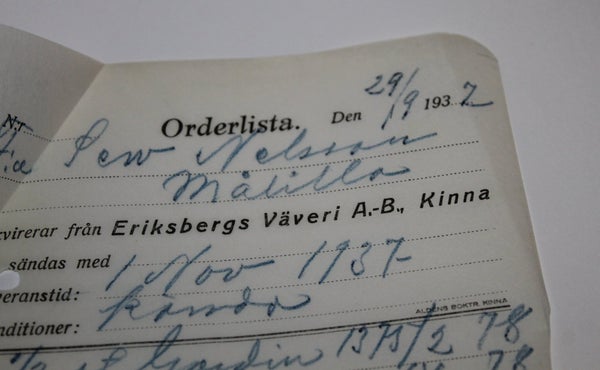 Nr
Orderlista. Den 29/9 1937
F:a Sew Nelsson
Målilla
rvirerar från Eriksbergs Väveri A.-B., Kinna
sändas med
1 Nov 1937
veranstid:
nditioner: kända
ALDENS BOKTR. KINNA
Gardin 1375/2 78
78